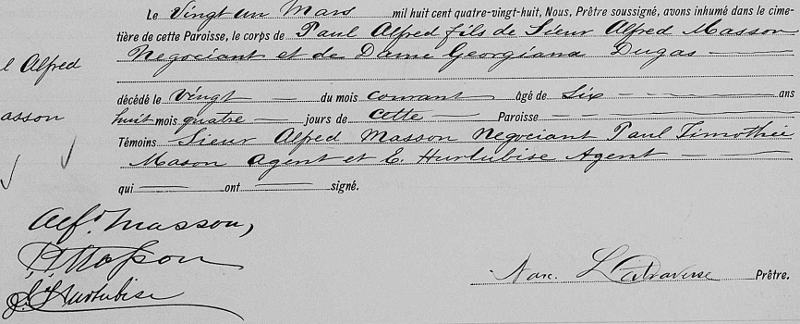 Le Vingt un Mars mil huit cent quatre-vingt-huit, Nous, Prêtre soussigné, avons inhumé dans le cime-
tière de cette Paroisse, le corps de Paul Alfred fils de Sieur Alfred Masson
l Alfred
Negociant et de Dame Georgiana Dugas
décédé le Vingt du mois courant âgé de Six ans
asson
huit mois quatre jours de cette Paroisse
Témoins Sieur Alfred Masson Negociant Paul Timothée
Mason Agent et E. Hurtubise Agent
qui ont signé.
Alfd Masson,
Masson
Hurtubise
Narc. Prêtre.